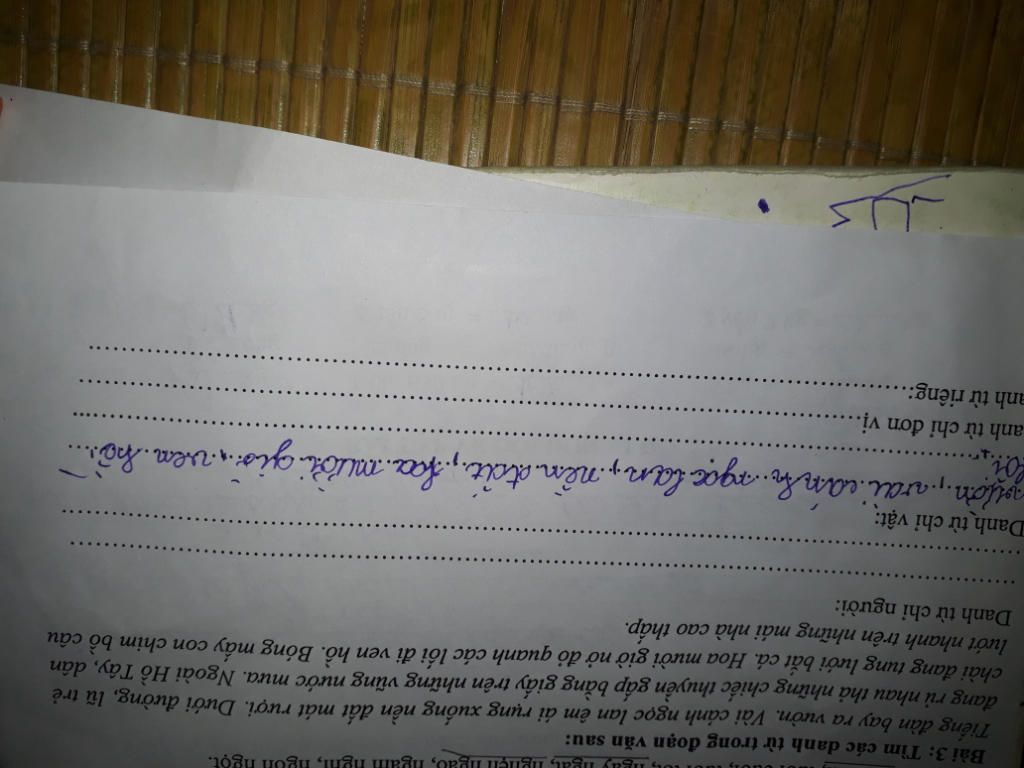 ngay ngất, nghện ngào, ngắm nghỉ, ngon ngọt.
Bài 3: Tìm các danh từ trong đoạn văn sau:
Tiếng đàn bay ra vườn. Vài cánh ngọc lan êm ái rụng xuống nền đất mát rượi. Dưới đường, lũ trẻ
đang rủ nhau thả những chiếc thuyền gấp bằng giấy trên những vũng nước mưa. Ngoài Hồ Tây, dân
chài đang tung lưới bắt cá. Hoa mười giờ nở đỏ quanh các lối đi ven hồ. Bóng mấy con chim bồ câu
lướt nhanh trên những mái nhà cao thấp.
Danh từ chỉ người:
Danh từ chỉ vật:
vườn, vài cánh ngọc lan, nền đất, hoa mười giờ, ven hồ,
anh từ chỉ đơn vị
anh từ riêng: